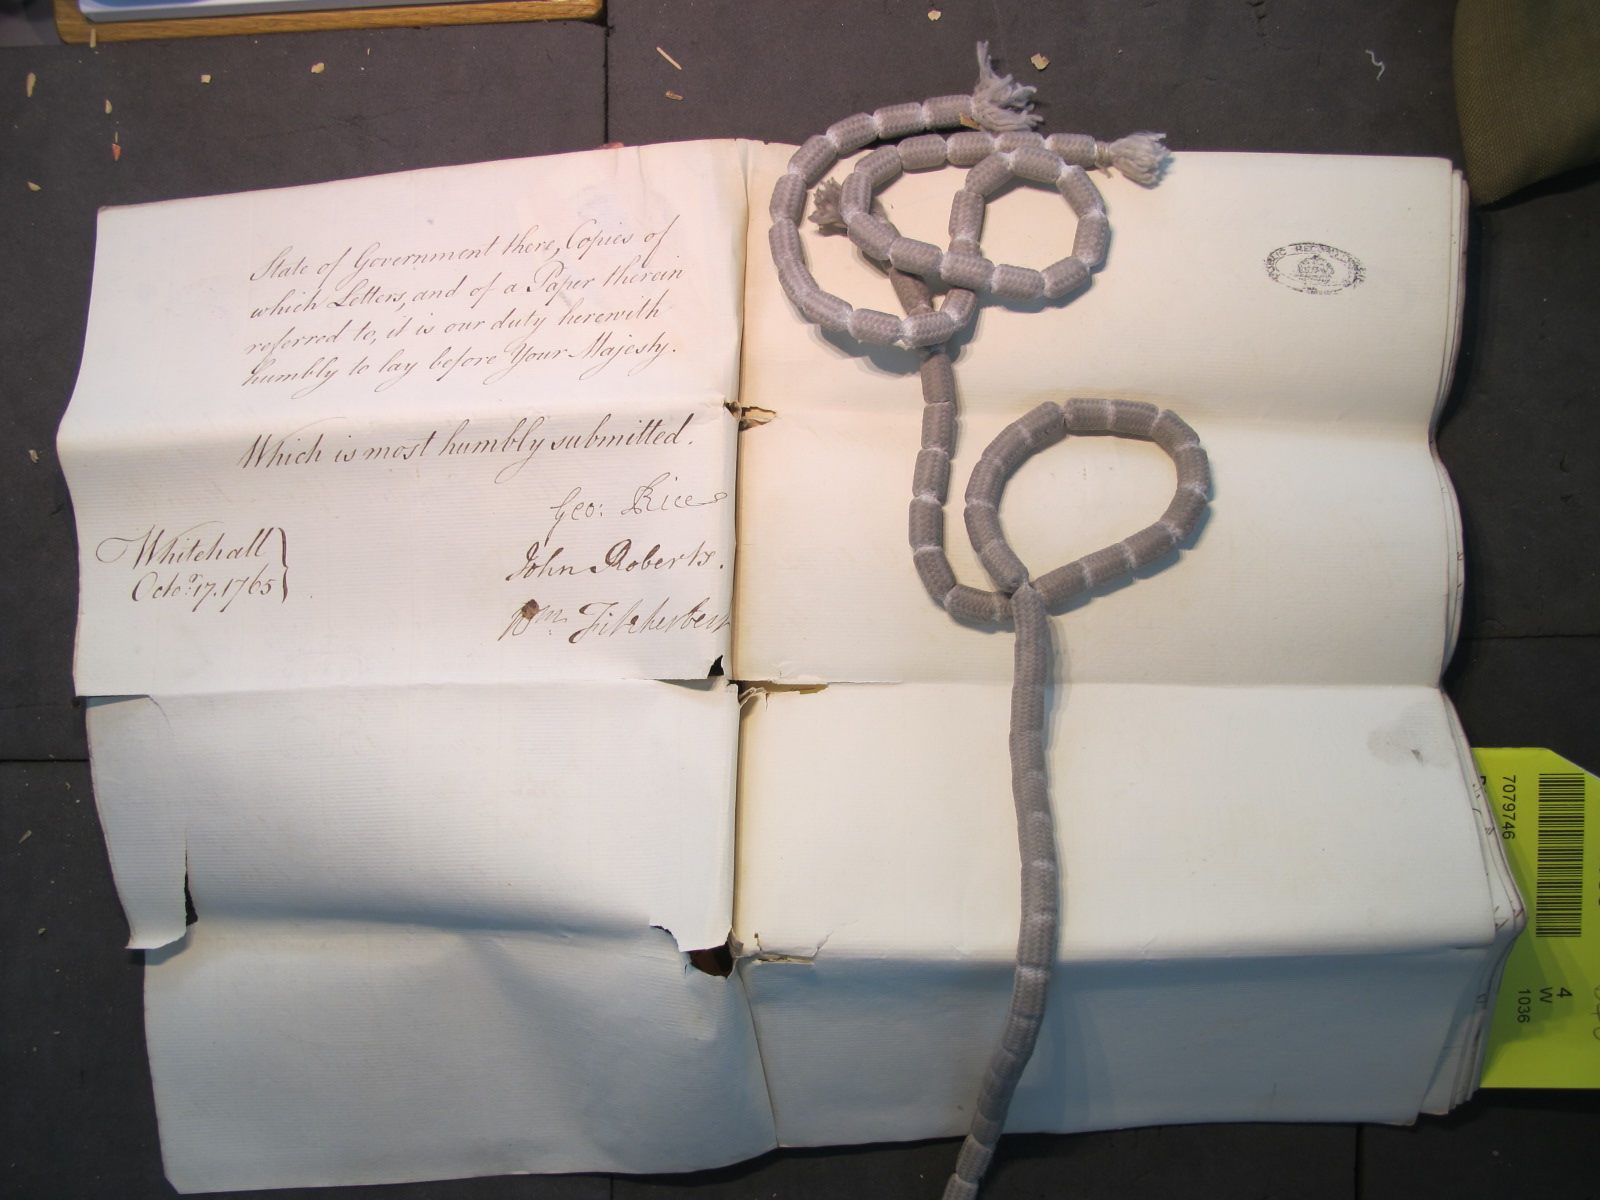 State of Government there, Copies of
which Letters, and of a Paper therein
referred to, it is our duty herewith
humbly to lay before Your Majesty.
Which is most humbly submitted.
Geo: Rice
John Roberts.
Wm: Fitzherbert
Whitehall
Octor. 17. 1765
PUBLIC RECORD OFFICE
7079746
4
W
1036